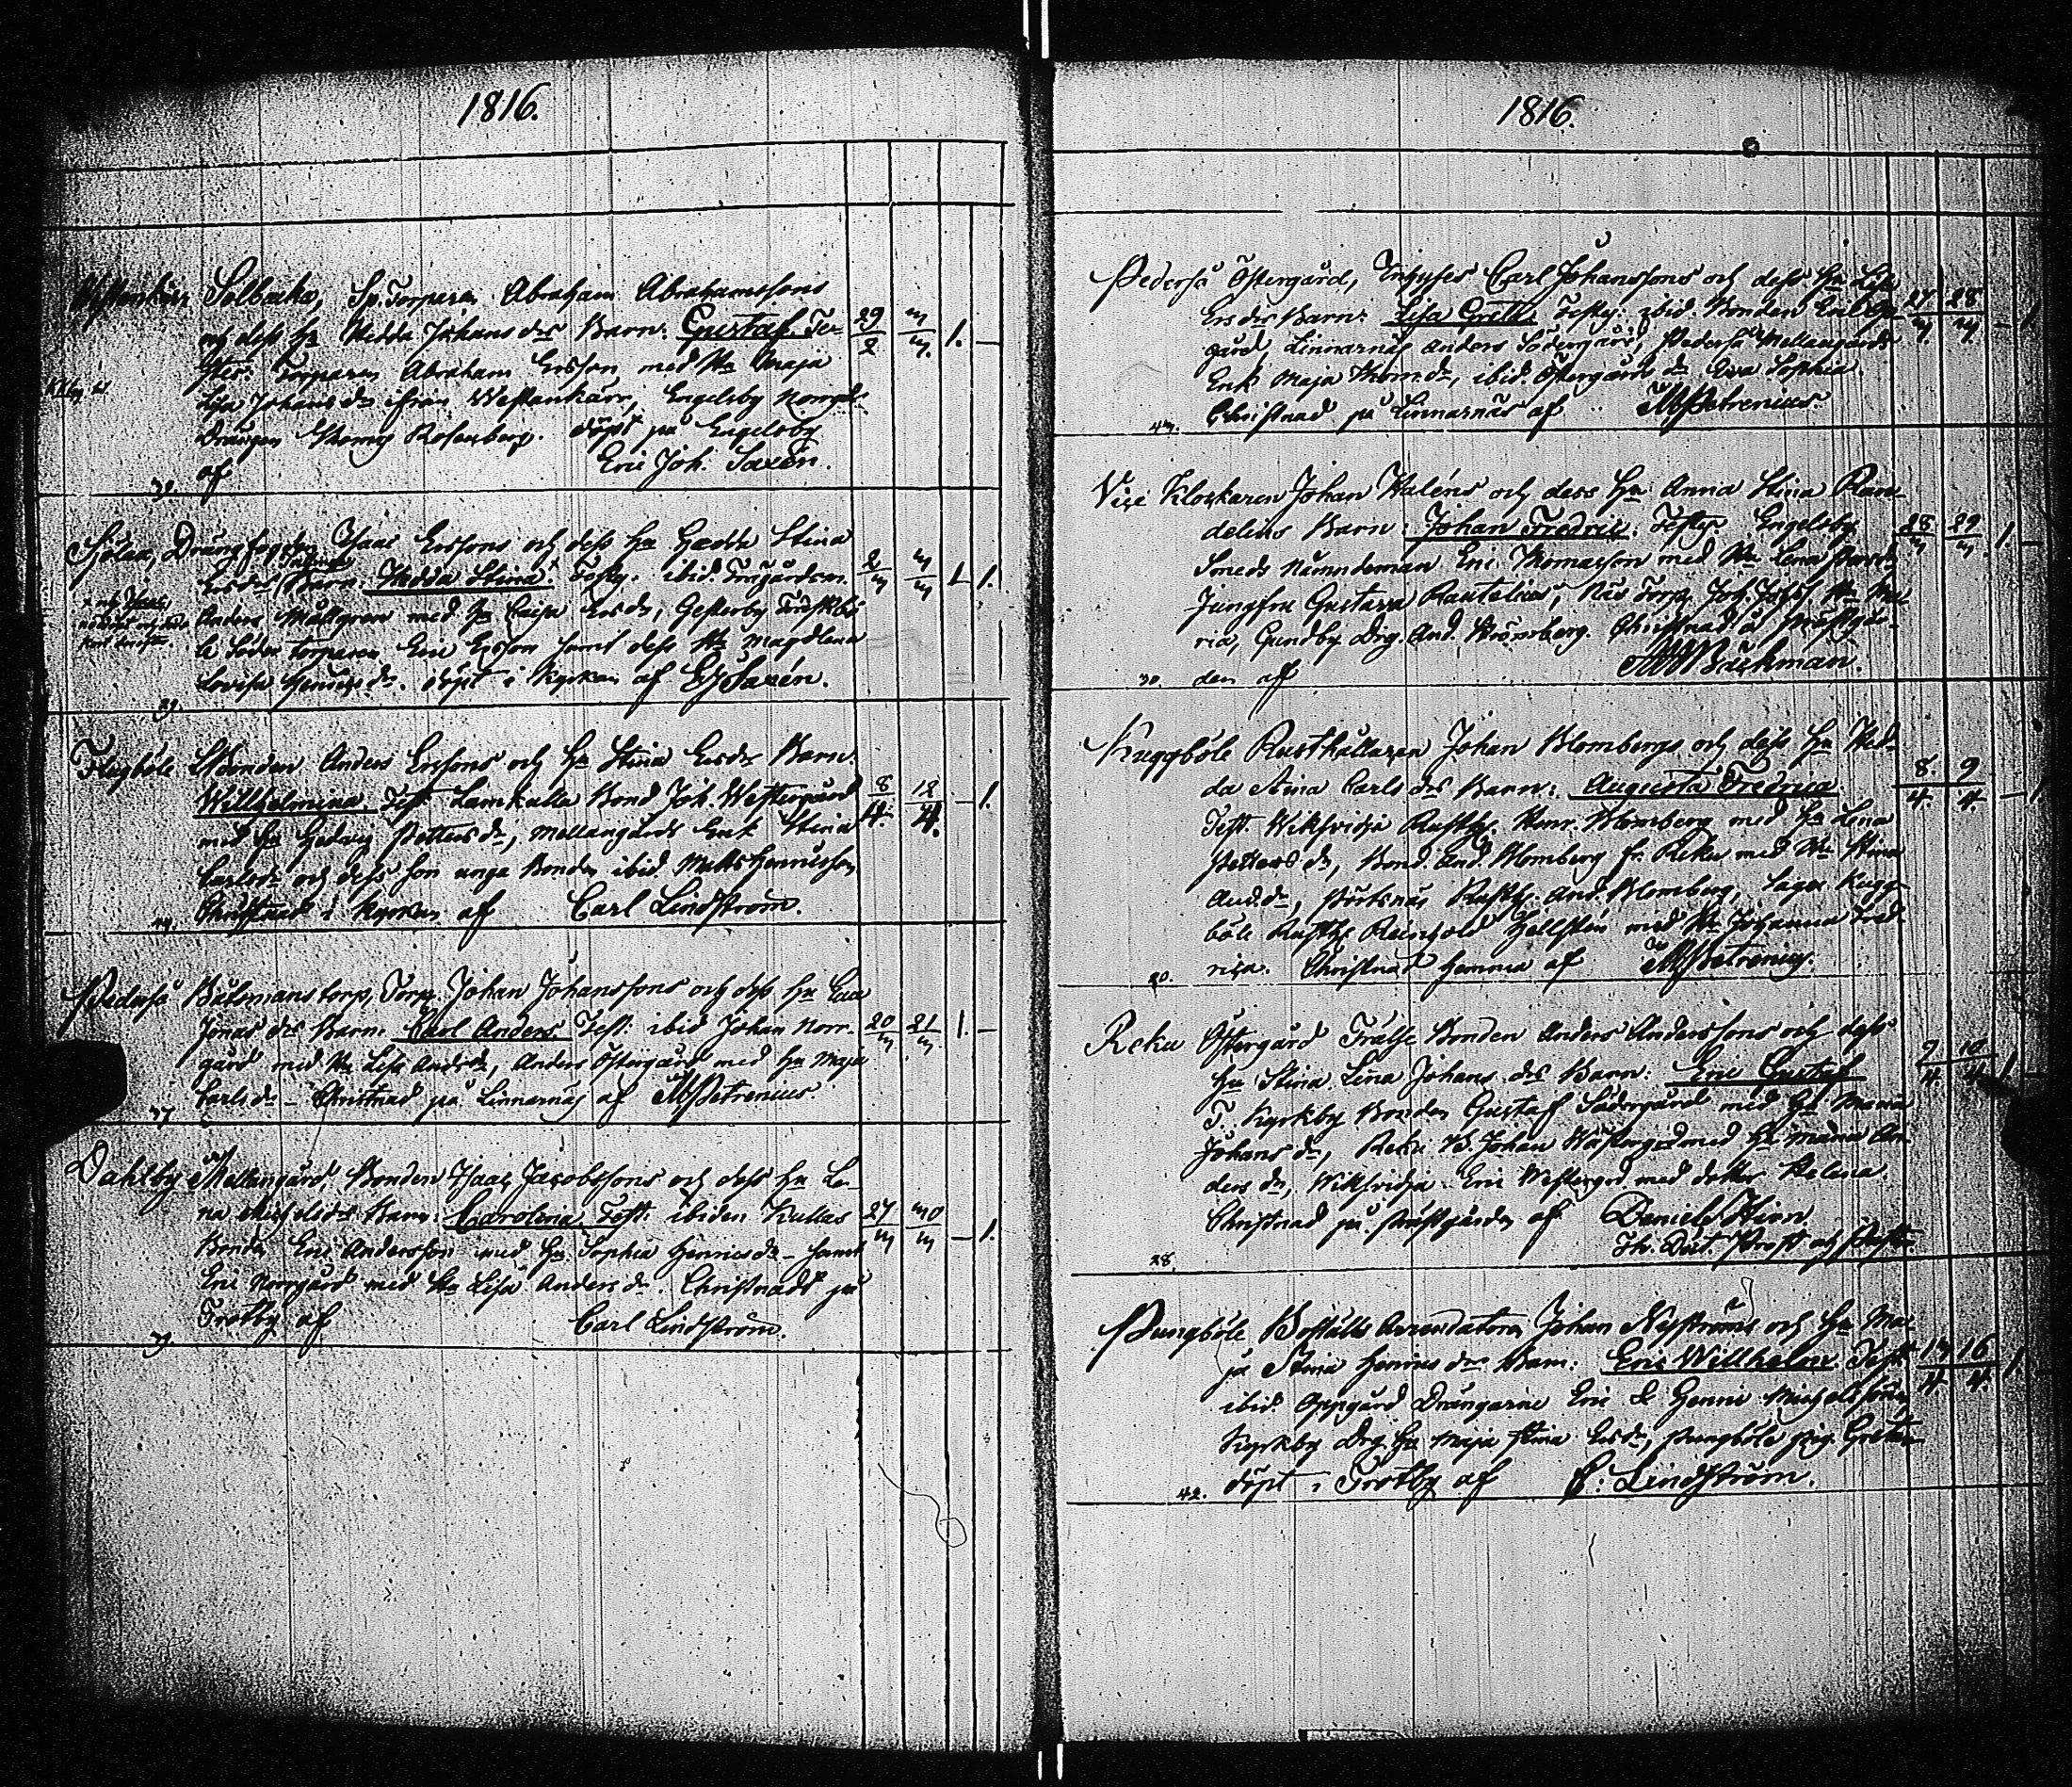 1816.
Westankärr Solbacka, Sv. Torparen Abraham Abrahamssons
och dess Hu Hedda Johans dr Barn: Gustaf. Te- 29/2 3/3. 1. –
stes: Torparen Abraham Ersson med Hu Maja
Lisa Johans dr från Westankärr, Engelsby Norrgds
Drängen Thomas Rosenberg. döpt på Engelsby
af Eric Joh: Saxén.
39.
Sjölax, Isaac Erssons och dess Hu Hedda Stina
Ers dr Barn. Hedda Stina. Testy. ibid. 2/3 3/3 – 1.
Anders Mållgren med Hu Caisa Ers dr, Gesterby
Söder torparen Eric Ersson samt dess Hu Magdlena
Lovisa Henrics dr. döpt i Kyrkan af EJSaxén.
39.
Flugböle Bonden Anders Erssons och Hu Stina Ers dr Barn:
Willhelmina Test. Lamkulla Bond. Joh. Westergård 8/4. 18/4. – 1.
med Hu Hedvig Petters dr, Mellangårds Enk. Stina
Carls dr och dess son unga Bonden ibid. Matts Henricsson
Christnad i Kyrkan af Carl Lindström.
44.
Pederså Båtsmanstorp, Torp. Johan Johanssons och dess Hu Caisa
Jonas dr Barn. Carl Anders. Test: ibid Johan Norr- 20/3 21/3. 1. –
gård med Hu Lisa And. dr, Anders Östergård med Hu Maja
Carls dr – Christnad på Linnarnäs af Petrenius.
37
Dahlby Mellangård, Bonden Isaac Jacobssons och dess Hu Le-
na Michels dr Barn: Carolina. Test: ibiden Kullas 27/3 30/3 – 1.
Bonden Eric Andersson med Hu Sophia Henrics dr – samt
Eric Norrgård med Hu Lisa Anders dr. Christnadt på
Trotby af Carl Lindström.
39.
1816.
Pederså Östergård, Inhyses Carl Johanssons och dess Hu Lisa
Ers dr Barn: Lisa Gretll. Testy: ibid. Bonden Eric 27/3. 28/3. – 1.
gård, Linnarnäs Anders Södergård, Pederså Mellangårds
Enk. Maja Thom. dr, ibid. Östergårds dr Eva Sophia
Christnad på Linnarnäs af Petrenius.
43.
Vice Klockaren Johan Haléns och dess Hu Anna Stina Ran-
delins Barn: Johan Fredric. Testy: Engelsby 28/3 29/3. 1 –
Smeds Nämndeman Eric Thomasson med Hu Lena
Jungfru Gustava Rautelius, Näs Torp. Joh. Hu Ma-
ria, Gundby Drg. And. Strömberg. Christnad å Prästgår-
den af Backman.
30.
Kuggböle Rusthållaren Johan Blombergs och dess Hu Hed-
da Stina Carls dr Barn: Augusta Fredrica 8./4. 9/4. – 1.
Test. Wiksvidja Rusth. Henr. Blomberg med Hu Lena
Petters dr, Bond. And. Blomberg fr. Reku med Hu Stina
And. dr, Pörtsnäs Rusth. And. Blomberg, Kugg-
böle Rusth. Reinhold Hellstén med Hu Johanna Fred-
rica. Christnad hemma af Petrenius.
20.
Reku Östergård Frälse Bonden Anders Anderssons och dess
Hu Stina Lena Johans dr Barn: Eric Gustaf 9/4. 10/4. 1
T. Kyrkby Bonden Gustaff Södergård med Hu Maria
Johans dr, Reku B. Johan Wästergrd med Hu Maria An-
ders dr, Wiksvidja Eric Westergrd med dotter Helena.
Christnad på Prästgården af Daniel Hirn.
Th. Doct. Prost och
28.
Pungböle Boställs Arrendatorn Johan Nyströms och Hu Ma-
ja Stina Henrics drs Barn: Eric Willhelm. Test. 13/4. 16/4. 1.
ibid. Oppgård Drängarne Eric & Henric Michelssöner
Kyrkby Drg. Hu Maja Stina Ers dr, Pungböle pig. Greta
döpt i Trotby af C: Lindström.
42.